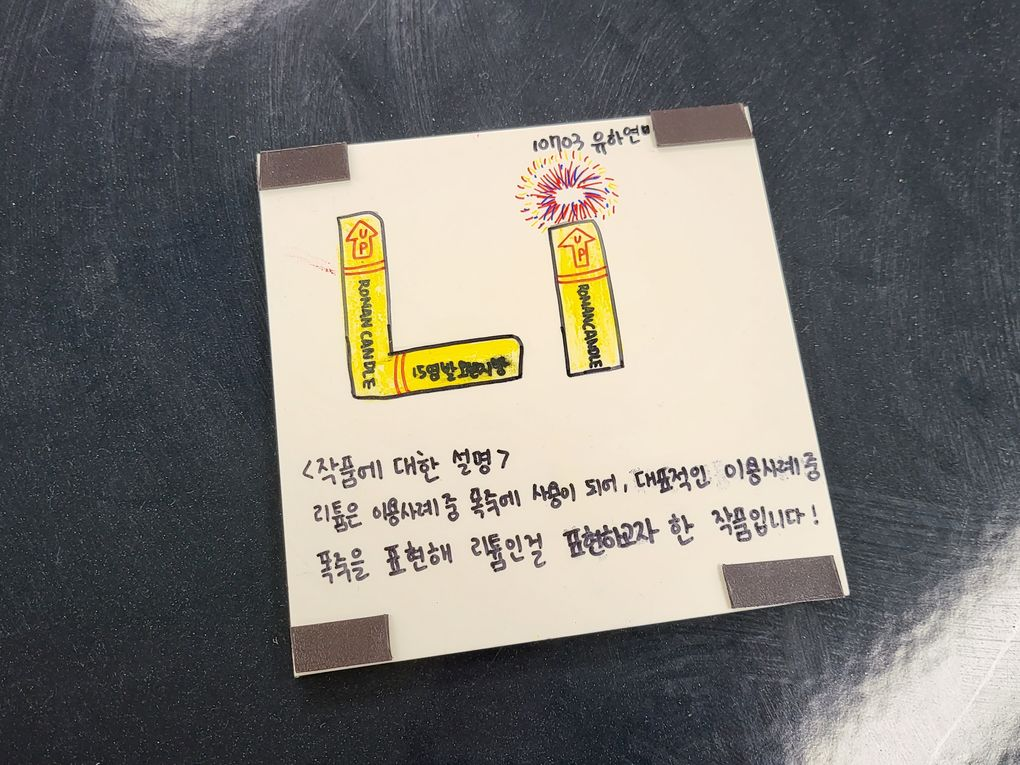 10703 유하연
UP
ROMAN CANDLE
15연발
UP
ROMAN CANDLE
<작품에 대한 설명>
리튬은 이용사례 중 폭죽에 사용이 되어, 대표적인 이용사례 중
폭죽을 표현해 리튬인걸 표현하고자 한 작품입니다!